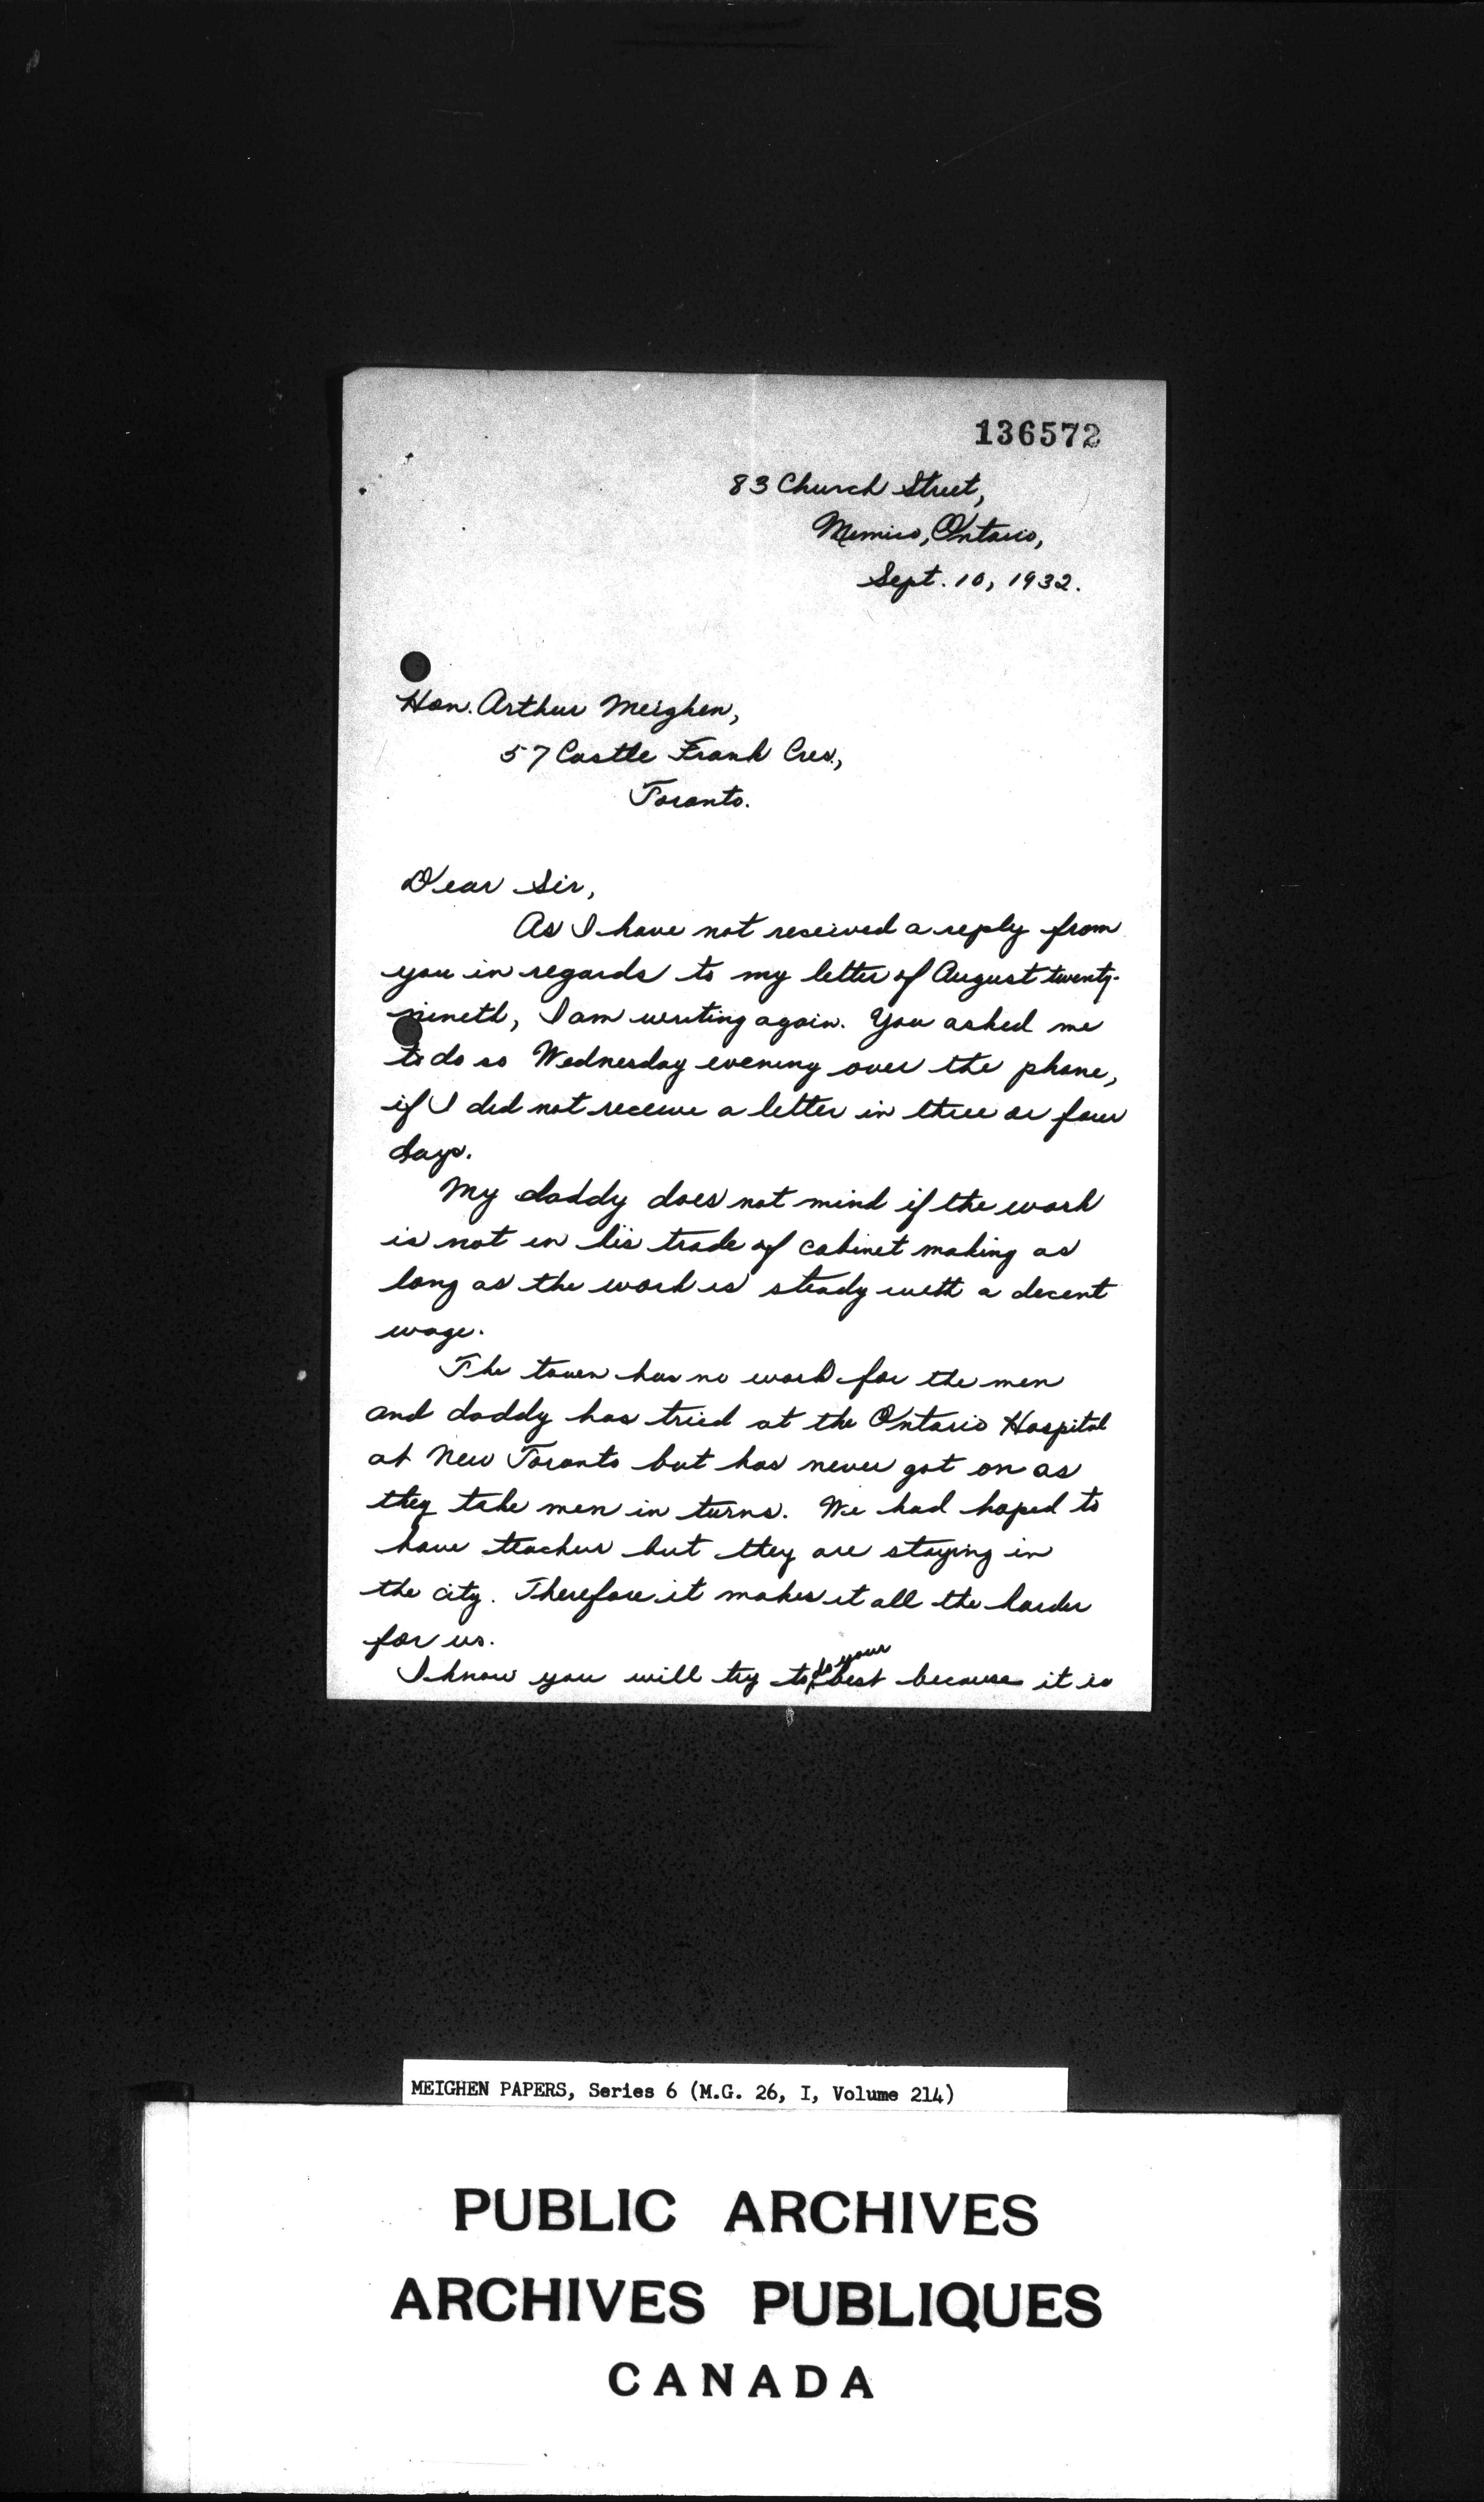 136572
83 Church Street,
Mimico, Ontario,
Sept. 10, 1932.
Hon. Arthur Meighen,
57 Castle Frank Cres.,
Toronto.
Dear Sir,
As I have not received a reply from
you in regards to my letter of August twenty-
nineth, I am writing again. You asked me
to do so Wednesday evening over the phone,
if I did not receive a letter in three or four
days.
My daddy does not mind if the work
is not in his trade of cabinet making as
long as the work is steady with a decent
wage.
The town has no work for the men
and daddy has tried at the Ontario Hospital
at New Toronto but has never got on as
they take men in turns. We had hoped to
have teachers but they are staying in
the city. Therefore it makes it all the harder
for us.
I know you will try to do your best because it is
MEIGHEN PAPERS, Series 6 (M.G. 26, I, Volume 214)
PUBLIC ARCHIVES
ARCHIVES PUBLIQUES
CANADA